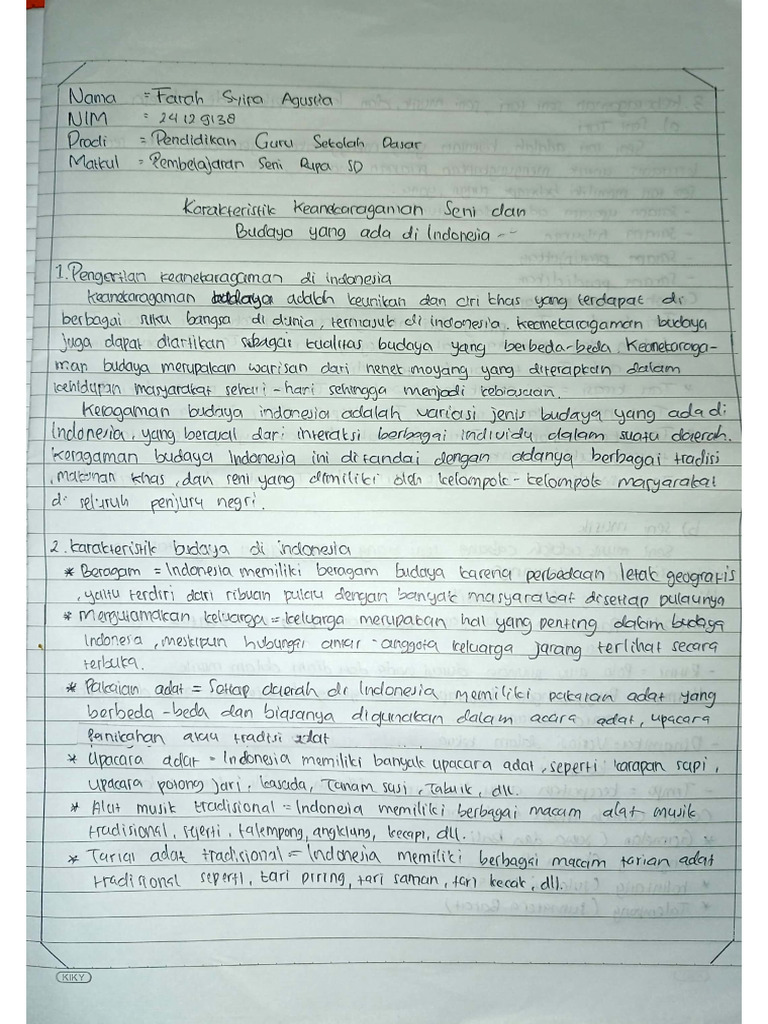 Nama = Farah Syira Agustia
NIM = 24129138
Prodi = Pendidikan Guru Sekolah Dasar
Matkul = Pembelajaran Seni Rupa SD
Karakteristik Keanekaragaman Seni dan
Budaya yang ada di Indonesia --
1. Pengertian keanekaragaman di indonesia
Keanekaragaman budaya adalah keunikan dan ciri khas yang terdapat di
berbagai suku bangsa di dunia, termasuk di indonesia. keanekaragaman budaya
juga dapat diartikan sebagai kualitas budaya yang berbeda-beda. Keanekaraga-
man budaya merupakan warisan dari nenek moyang yang diterapkan dalam
kehidupan masyarakat sehari-hari sehingga menjadi kebiasaan.
Keragaman budaya indonesia adalah variasi jenis budaya yang ada di
Indonesia, yang berasal dari interaksi berbagai individu dalam suatu daerah.
Keragaman budaya Indonesia ini ditandai dengan adanya berbagai tradisi
, makanan khas, dan seni yang dimiliki oleh kelompok-kelompok masyarakat
di seluruh penjuru negri.
2. karakteristik budaya di indonesia
* Beragam = Indonesia memiliki beragam budaya karena perbedaan letak geografis
, yaitu terdiri dari ribuan pulau dengan banyak masyarakat disetiap pulaunya
* Mengutamakan keluarga = keluarga merupakan hal yang penting dalam budaya
Indonesa, meskipun hubungan antar-anggota keluarga jarang terlihat secara
terbuka.
* Pakaian adat = Setiap daerah di Indonesia memiliki pakaian adat yang
berbeda-beda dan biasanya digunakan dalam acara adat, upacara
Panikahan atau tradisi adat
* Upacara adat = Indonesia memiliki banyak upacara adat, seperti karapan sapi,
upacara potong jari, kasada, Tanam sasi, Tabuik, dll.
* Alat musik tradisional = Indonesia memiliki berbagai macam alat musik
tradisional, seperti, talempong, angklung, kecapi, dll.
* Tarian adat tradisional = Indonesia memiliki berbagai macam tarian adat
tradisional seperti, tari piring, tari saman, tari kecak, dll.
KIKY